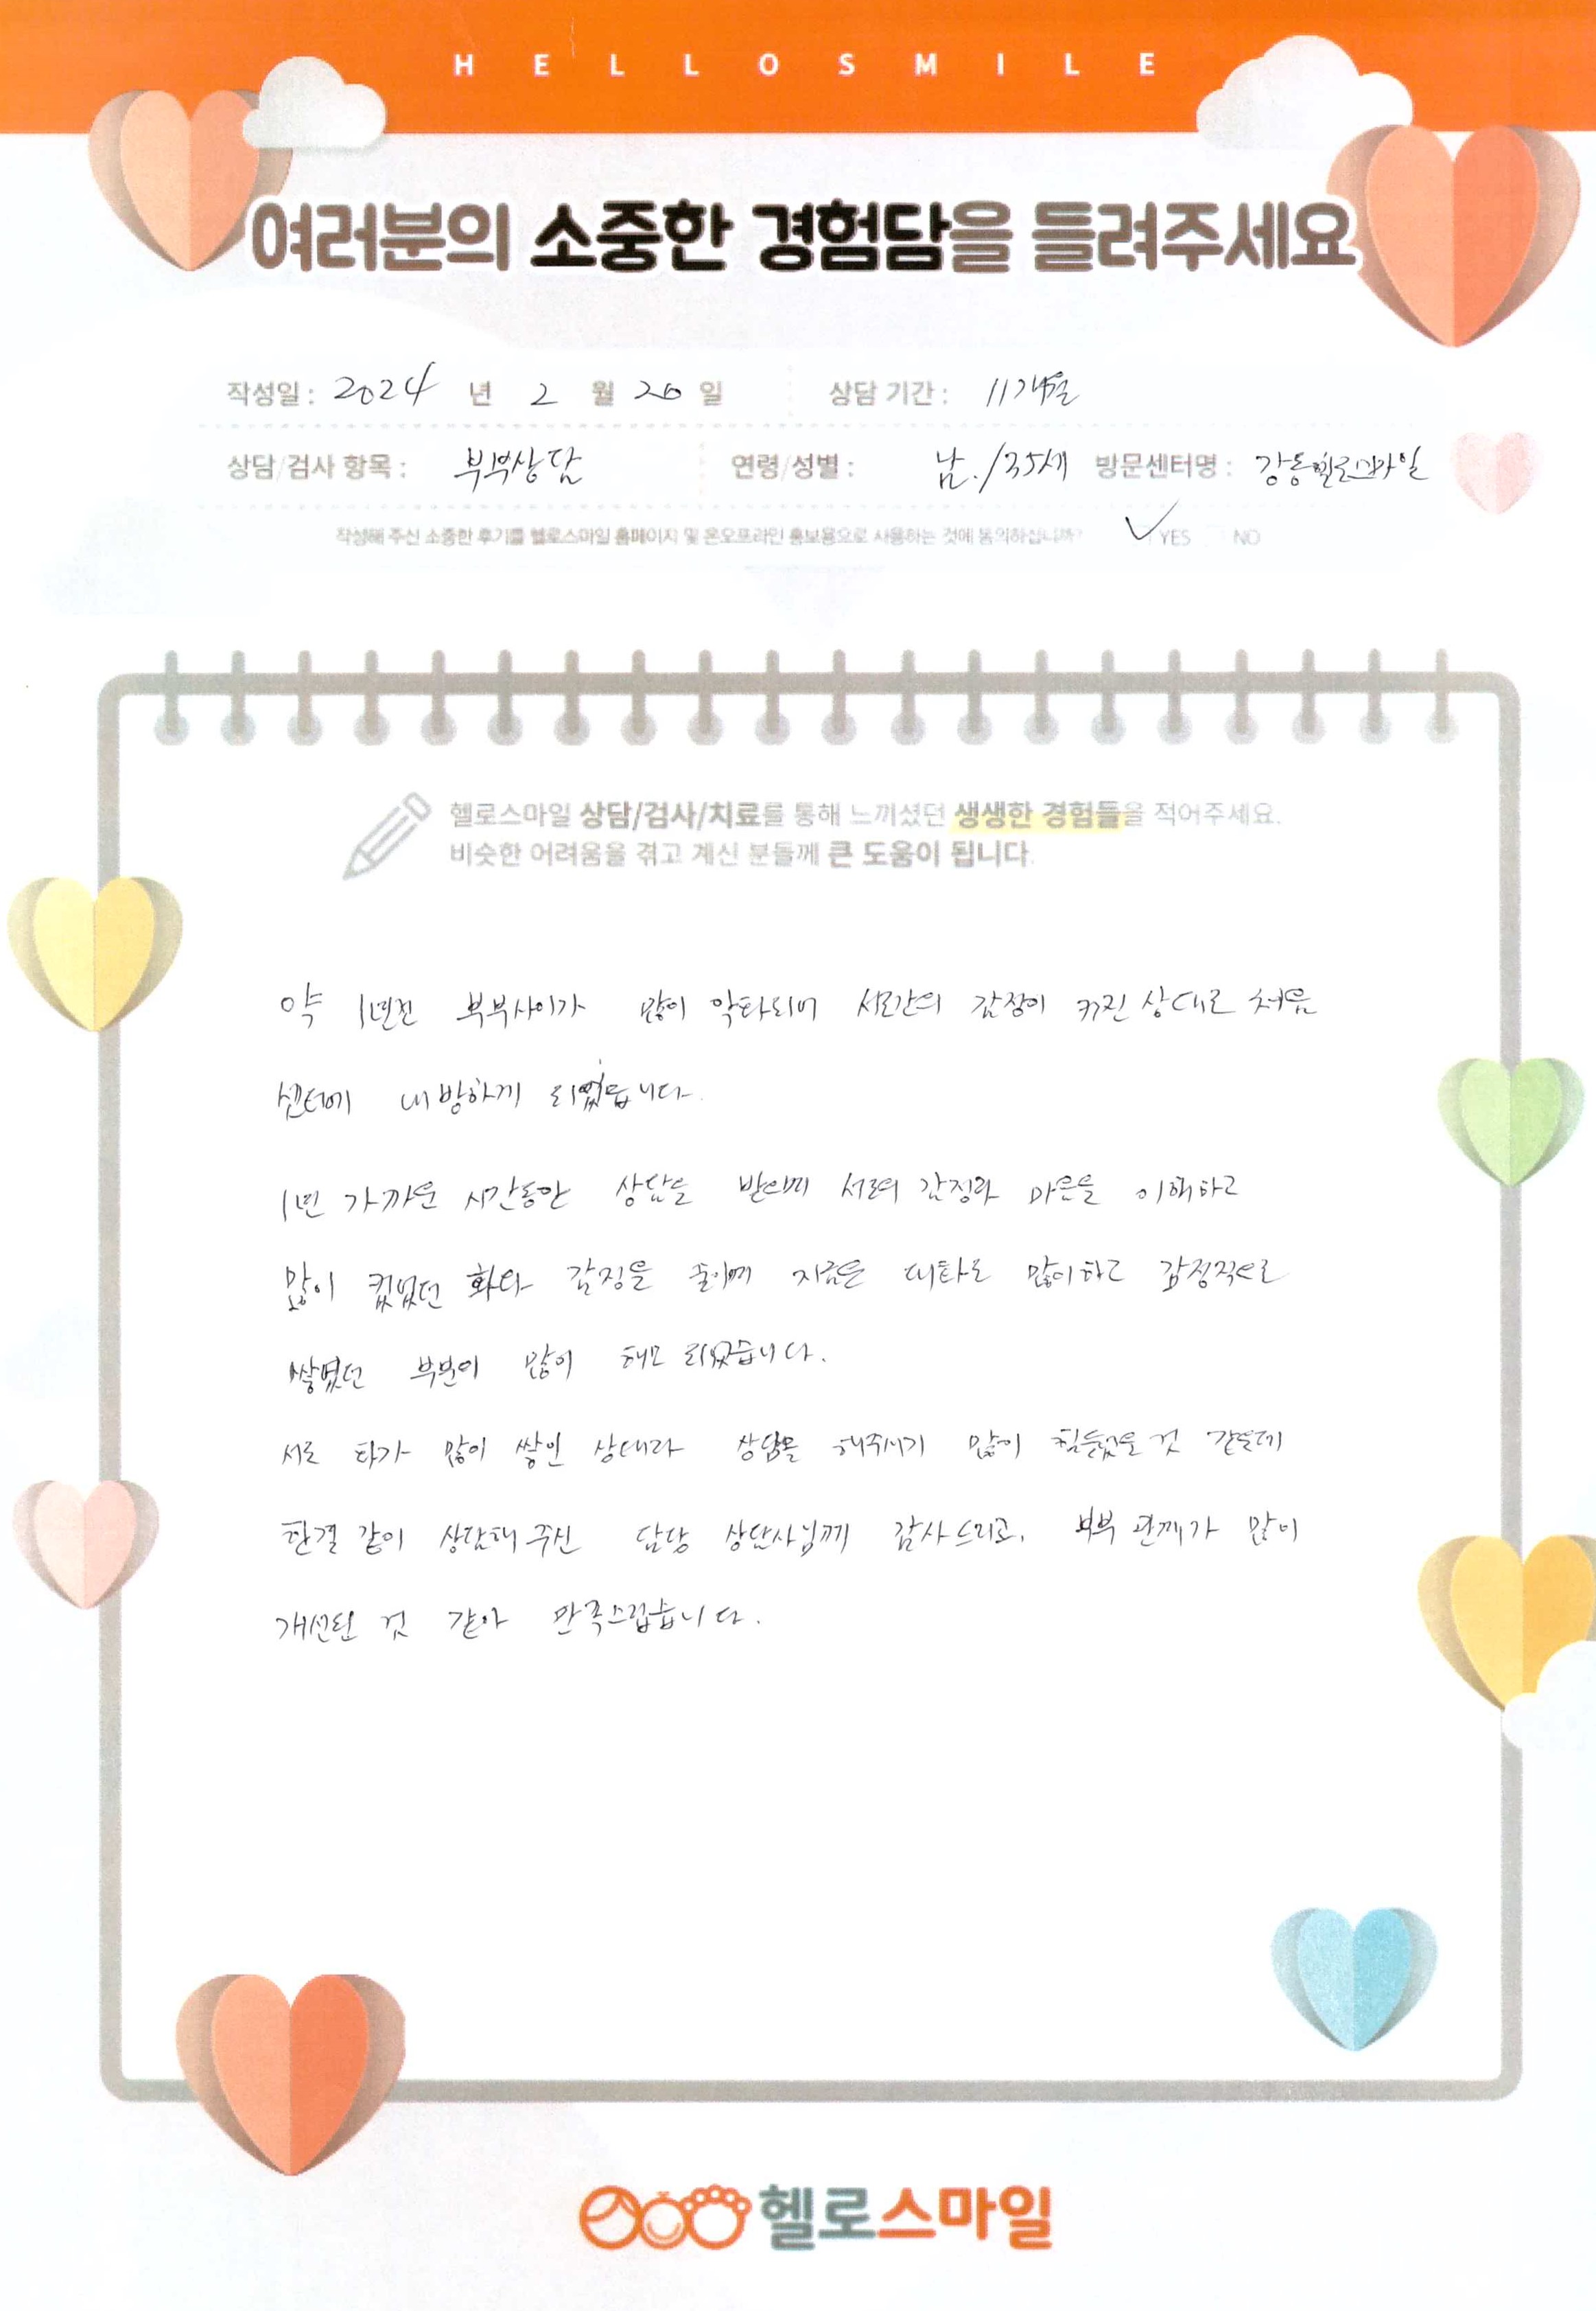 HELLOSMILE
여러분의 소중한 경험담을 들려주세요
작성일 : 2024 년 2 월 20 일 상담 기간 : 11개월
상담/검사 항목 : 부부상담 연령/성별 : 남./35세 방문센터명 : 강동헬로스마일
작성해 주신 소중한 후기를 헬로스마일 홈페이지 및 온오프라인 홍보용으로 사용하는 것에 동의하십니까? ✓ YES NO
헬로스마일 상담/검사/치료를 통해 느끼셨던 생생한 경험들을 적어주세요.
비슷한 어려움을 겪고 계신 분들께 큰 도움이 됩니다.
약 1년전 부부사이가 많이 악화되어 서로간의 감정이 커진 상태로 처음
센터에 내방하게 되었습니다.
1년 가까운 시간동안 상담을 받으며 서로의 감정과 마음을 이해하고
많이 컸었던 화나 감정을 줄이며 지금은 대화도 많이하고 감정적으로
쌓였던 부분이 많이 해소 되었습니다.
서로 화가 많이 쌓인 상태라 상담을 해주시기 많이 힘들었을 것 같은데
한결 같이 상담해 주신 담당 상담사님께 감사드리고, 부부 관계가 많이
개선된 것 같아 만족스럽습니다.
헬로스마일